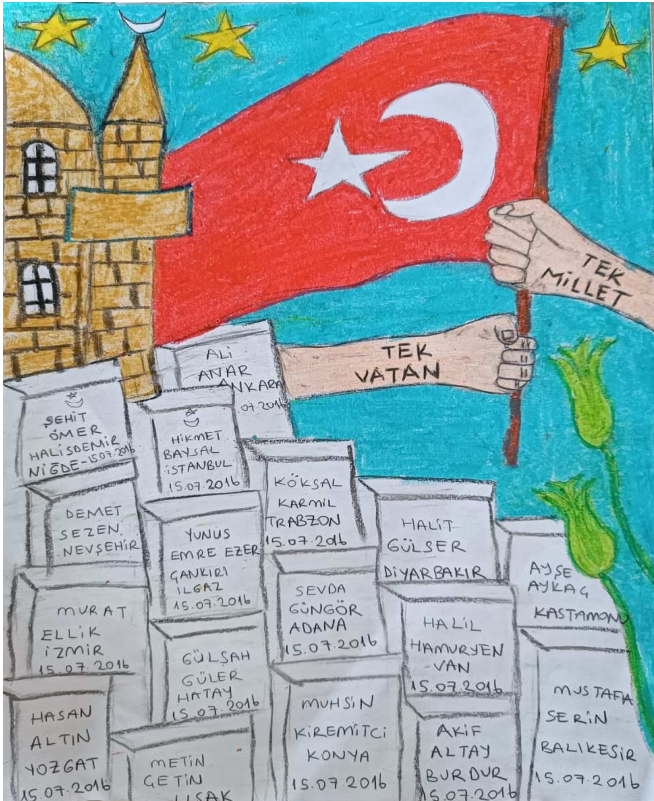 TEK
MİLLET
TEK
VATAN
ALİ
ANAR
ANKARA
.07.2016
ŞEHİT
ÖMER
HALİSDEMİR
NİĞDE-15.07.2016
HİKMET
BAYSAL
İSTANBUL
15.07.2016
KÖKSAL
KARMİL
TRABZON
15.07.2016
DEMET
SEZEN
NEVŞEHİR
YUNUS
EMRE EZER
ÇANKIRI
ILGAZ
15.07.2016
HALİT
GÜLSER
DİYARBAKIR
AYŞE
AYKAÇ
KASTAMONU
SEVDA
GÜNGÖR
ADANA
15.07.2016
MURAT
ELLİK
İZMİR
15.07.2016
HALİL
HAMURYEN
VAN
15.07.2016
GÜLŞAH
GÜLER
HATAY
15.07.2016
MUSTAFA
SERİN
BALIKESİR
15.07.2016
MUHSİN
KİREMİTCİ
KONYA
15.07.2016
HASAN
ALTIN
YOZGAT
15.07.2016
AKİF
ALTAY
BURDUR
15.07.2016
METİN
ÇETİN
UŞAK